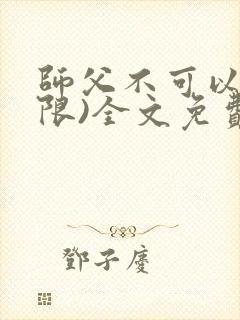 師父不可以
限)全文免費
鄧子慶